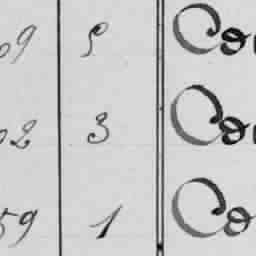 09 5 Co
02 3 Co
59 1 Co